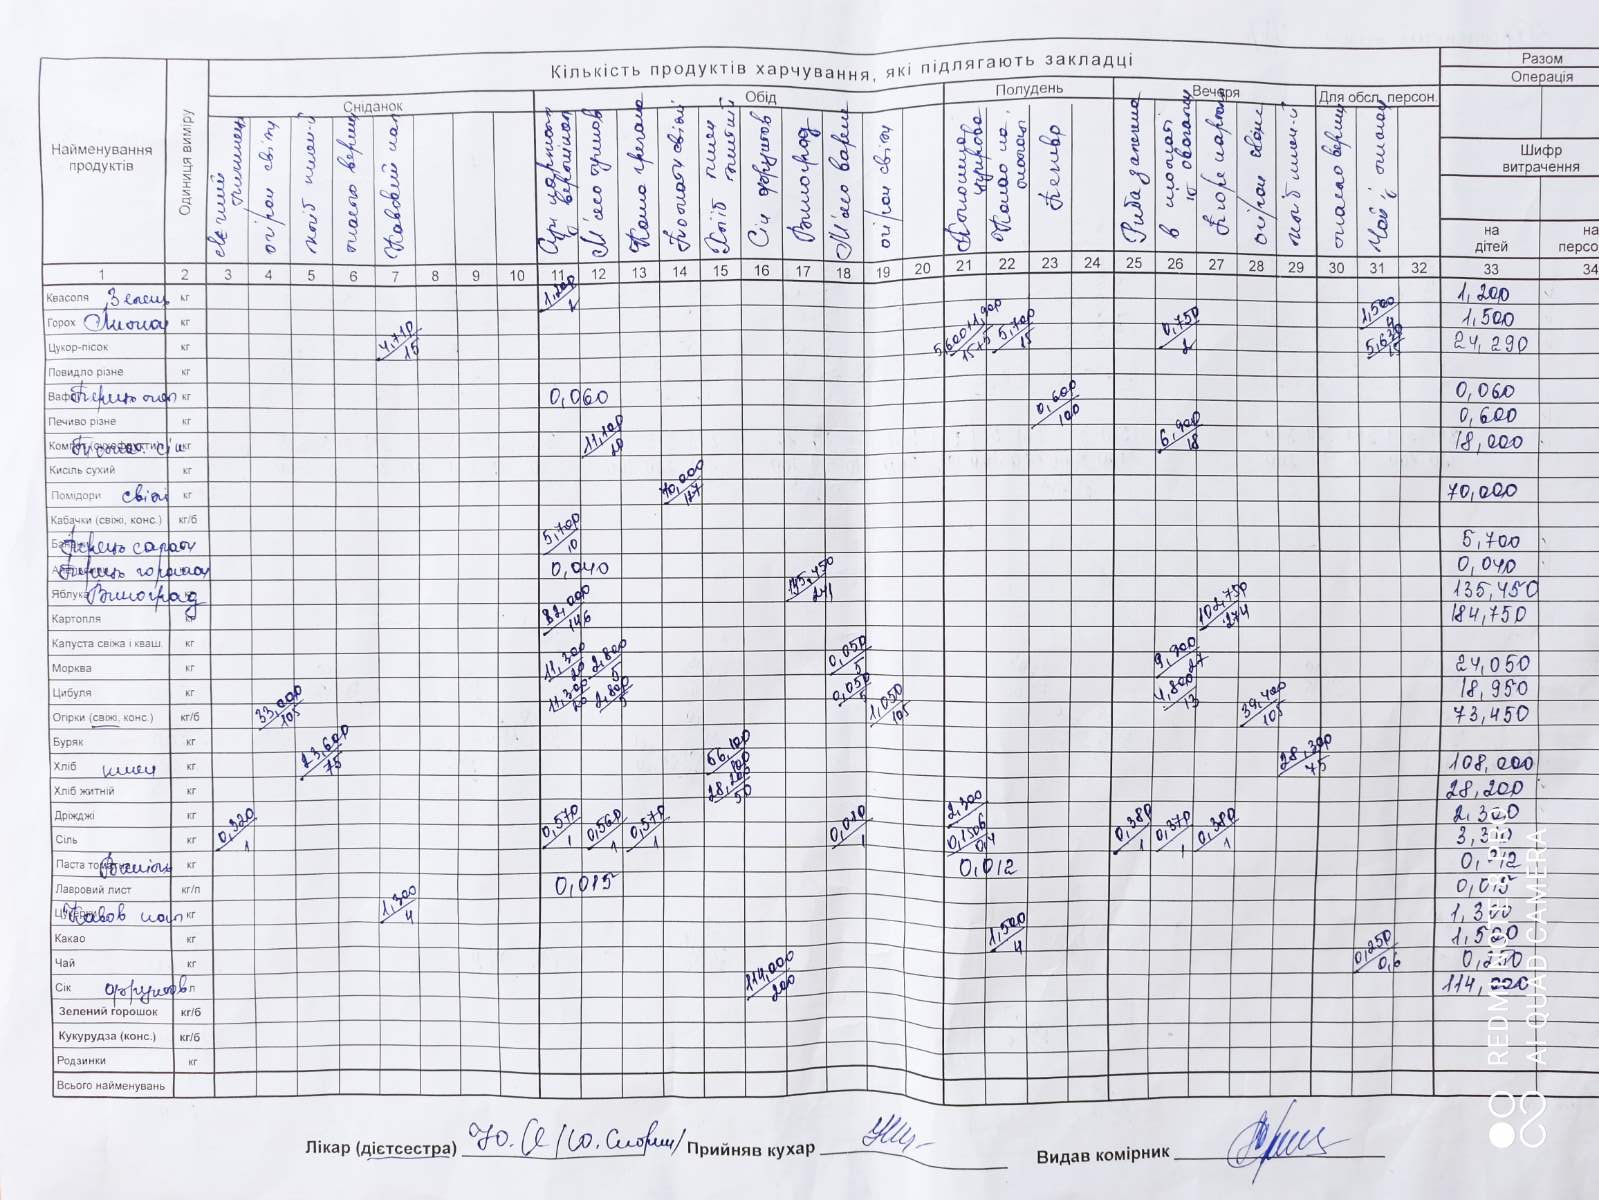 Кількість продуктів харчування, які підлягають закладці
Разом
Операція
Сніданок
Обід
Полудень
Вечеря
Для обсл. персон.
Найменування продуктів
Одиниця виміру
огірок свіжі
хліб
масло верш
Хліб
Сік фруктов
Виноград
М'ясо варене
огірок свіжі
Какао на
Печиво
Риба запечена
Пюре картоп
огірок свіж
Шифр витрачення
на дітей
на персо
1 2 3 4 5 6 7 8 9 10 11 12 13 14 15 16 17 18 19 20 21 22 23 24 25 26 27 28 29 30 31 32 33 34
Квасоля Зелень кг 1,200 1,200
Горох Лимон кг 1,500/4 1,500
Цукор-пісок кг 4,710/15 5,600+1,900/15+5 5,700/15 0,750/2 5,630/15 24,290
Повидло різне кг
Ваф Перець кг 0,060 0,060
Печиво різне кг 0,600/100 0,600
кг 11,100/20 6,900/18 18,000
Кисіль сухий кг
Помідори свіжі кг 70,000/127 70,000
Кабачки (свіжі, конс.) кг/б
Перець салат 5,700/10 5,700
Перець горошок 0,040 0,040
Яблука Виноград 135,450/241 135,450
Картопля кг 82,000/146 102,750/274 184,750
Капуста свіжа і кваш. кг
Морква кг 11,300/20 2,800/5 0,050/5 9,900/27 24,050
Цибуля кг 11,300/20 2,800/5 0,050/5 4,800/13 18,950
Огірки (свіжі, конс.) кг/б 33,000/105 1,050/105 39,400/105 73,450
Буряк кг
Хліб пшен кг 23,600/75 56,100/100 28,300/75 108,000
Хліб житній кг 28,200/50 28,200
Дріжджі кг 2,300 2,300
Сіль кг 0,320/1 0,570/1 0,560/1 0,570/1 0,010/1 0,1506/0,4 0,380/1 0,370/1 0,380/1
Паста томатна Ванілін кг 0,012
Лавровий лист кг/п 0,015 0,015
Кавов нап кг 1,300/4 1,300
Какао кг 1,500/4 1,500
Чай кг 0,250/0,6 0,250
Сік фруктов л 114,000/200 114,000
Зелений горошок кг/б
Кукурудза (конс.) кг/б
Родзинки кг
Всього найменувань
Лікар (дієтсестра)
Прийняв кухар
Видав комірник
REDMI NOTE 8 PRO
AI QUAD CAMERA